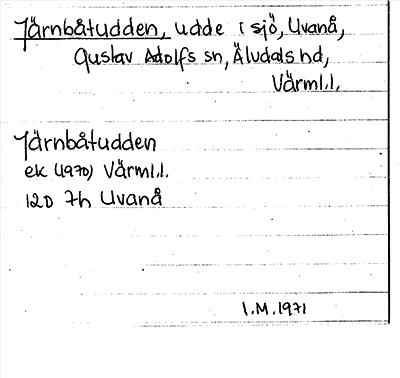 Järnbåtudden, udde i sjö, Uvanå,
Gustav Adolfs sn, Älvdals hd,
Värml.l.
Järnbåtudden
ek (1970) Värml.l.
12D 7h Uvanå
I.M.1971